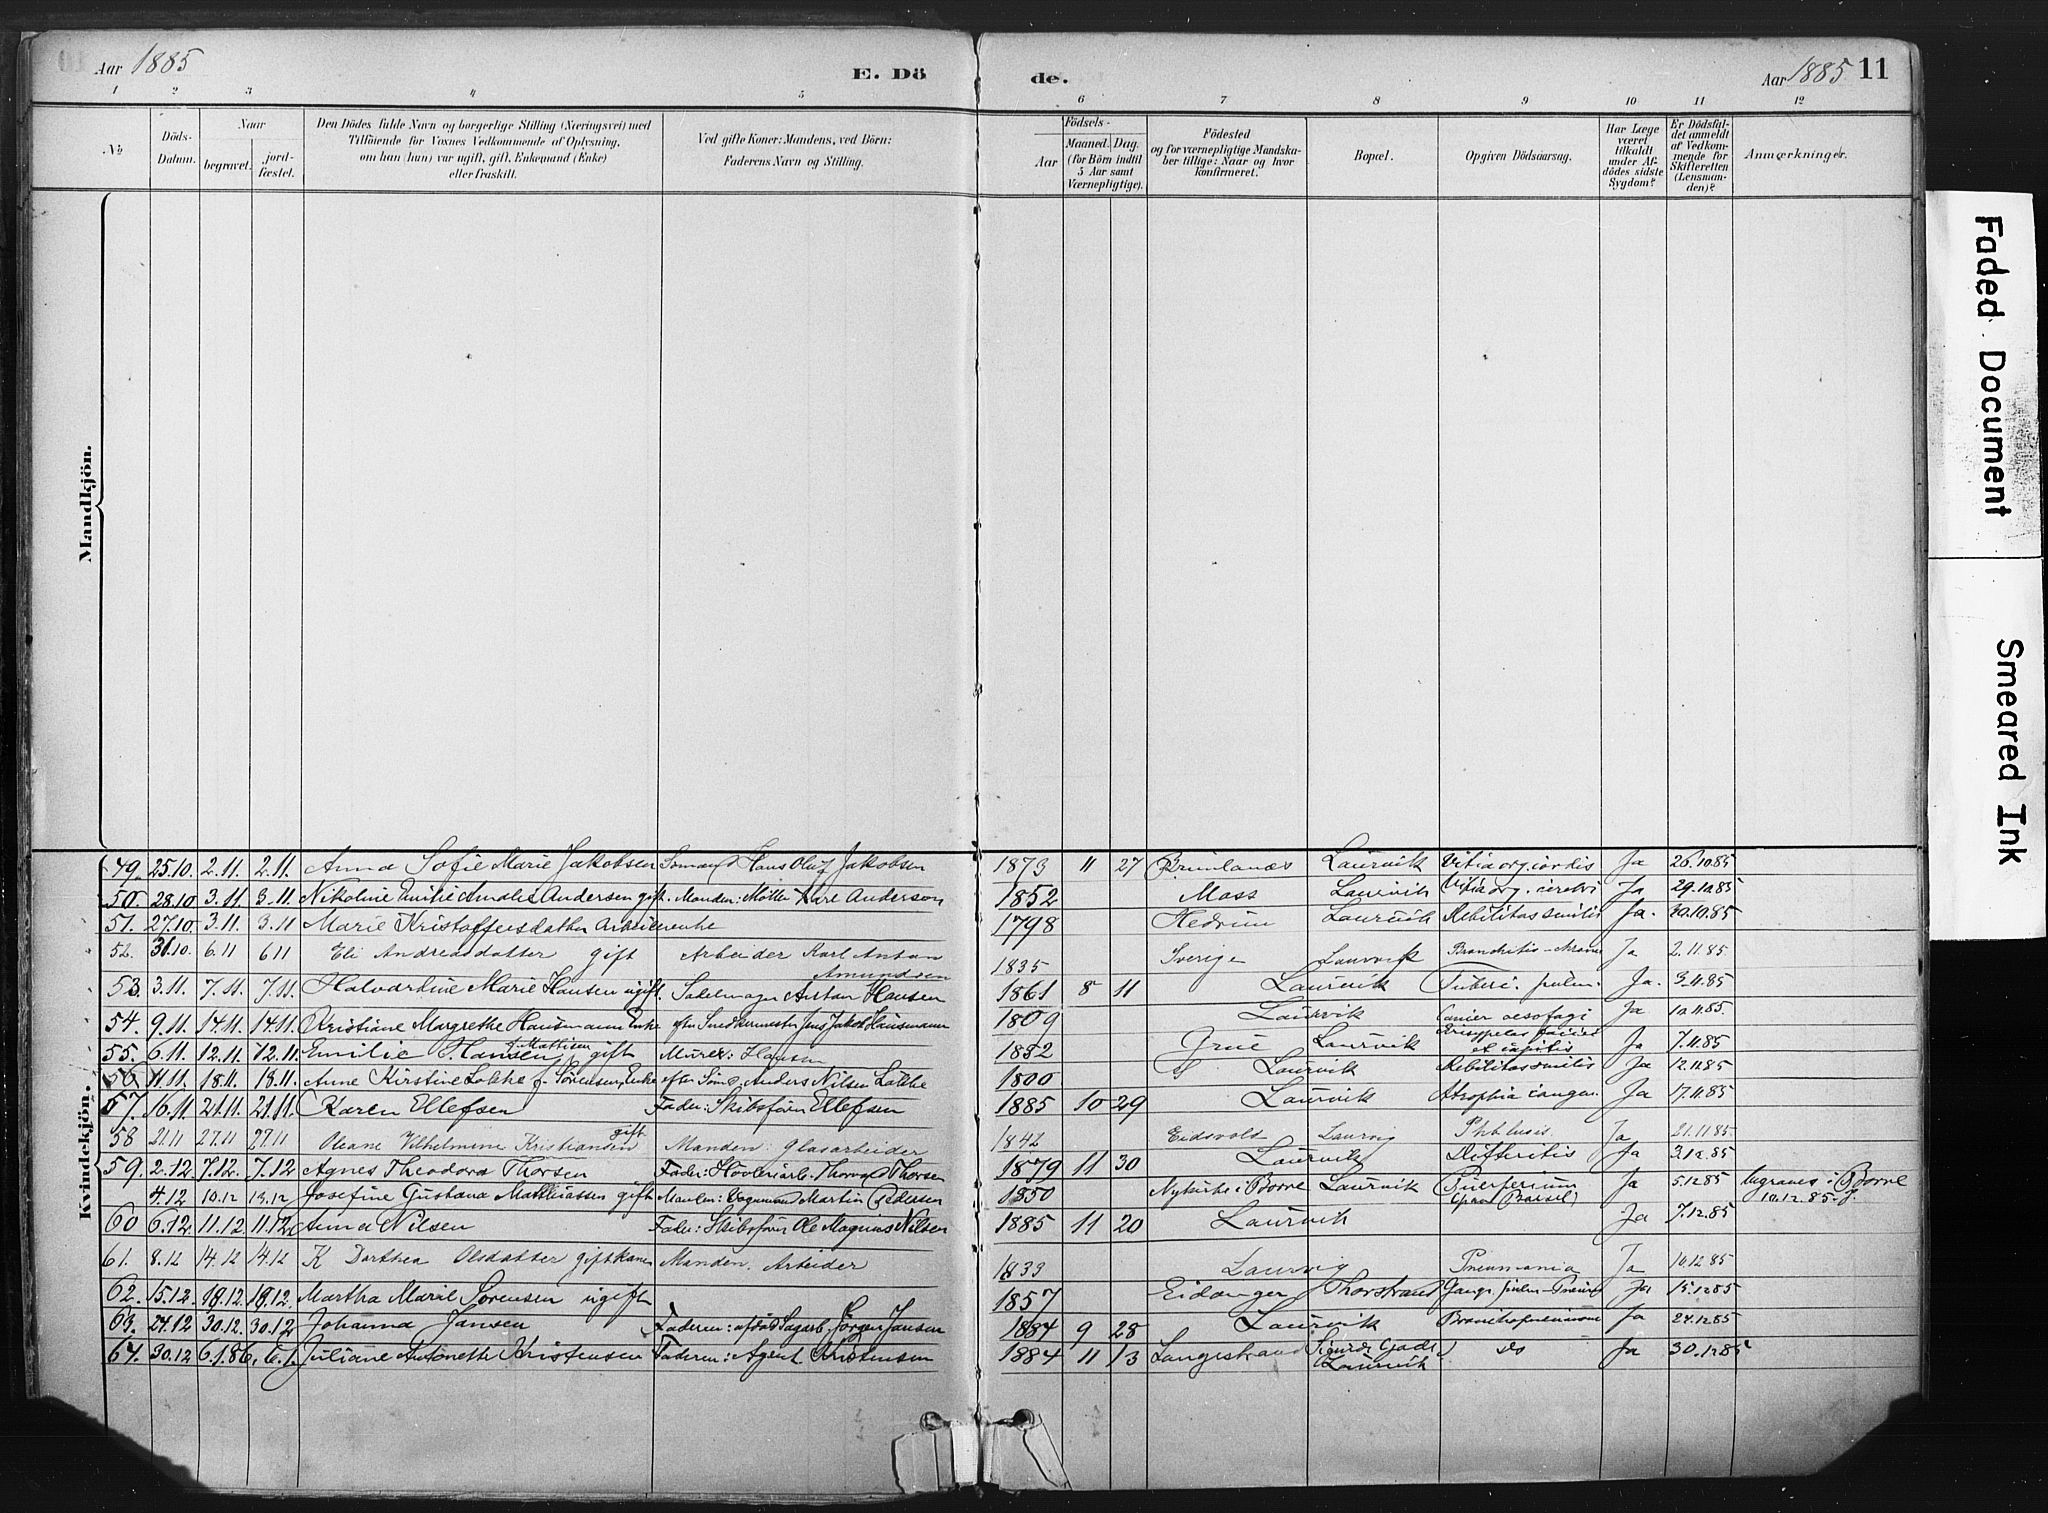 Aar 1885
E. Dö
de.
Aar 1885 11
1 2 3 4 5 6 7 8 9 10 11 12
№
Döds-Datum.
Naar
begravet.
jord-fæstet.
Den Dödes fulde Navn og borgerlige Stilling (Næringsvei) med
Tilföiende for Voxnes Vedkommende af Oplysning,
om han (hun) var ugift, gift, Enkemand (Enke)
eller fraskilt.
Ved gifte Koner: Mandens, ved Börn:
Faderens Navn og Stilling.
Födsels-
Aar
Maaned. Dag.
(for Börn indtil
5 Aar samt
Værnepligtige).
Födested
og for værnepligtige Mandska-
ber tillige: Naar og hvor
konfirmeret.
Bopæl.
Opgiven Dödsaarsag.
Har Læge
været
tilkaldt
under Af-
dödes sidste
Sygdom?
Er Dödsfal-
det anmeldt
af Vedkom-
mende for
Skifteretten
(Lensman-
den)?
Anmærkninger.
Mandkjön.
Kvindekjön.
49. 25.10. 2.11. 2.11. Anna Sofie Marie Jakobsen Sömand Hans Oluf Jakobsen 1873 11 27 Brunlanæs Laurvik Vitia org. cordis Ja 26.10.85
50. 28.10 3.11. 3.11. Nikoline Emilie Amalie Andersen gift. Manden: Möller Andersen 1852 Moss Laurvik Vitia org. cerebri Ja 29.10.85
51. 27.10 3.11. 3.11 Marie Kristoffersdatter Arbeiderenke 1798 Hedrum Laurvik Debilitas senilis Ja. 30.10.85
52. 31.10. 6.11 6 11 Eli Andreasdatter gift Arbeider Karl Anton Amundsen 1835 Sverige Laurvik Ja 2.11.85
53. 3.11. 7.11. 7.11. Halvardine Marie Hansen ugift. Sadelmager Anton Hansen 1861 8 11 Laurvik Tuberc. pulm. Ja. 3.11.85
54. 9.11. 14.11. 14.11. Kristiane Margrethe Hausmann Enke efter Snedkermester Jens Jakob Hausmann 1809 Laurvik Cancer oesofagi Ja 10.11.85.
55. 6.11. 12.11. 12.11. Emilie Hansen f. Mattisen gift Murer: Hansen 1852 Grue Laurvik Erysipelas faciei et capitis Ja 7.11.85
56. 11.11. 18.11. 18.11. Anne Kirstine Lökke f. Sörensen, Enke efter Söm. Anders Nilsen Lökke 1800 Laurvik Debilitas senilis Ja 12.11.85
57. 16.11 21.11. 21.11. Karen Ellefsen Fader: Skibsförer Ellefsen 1885 10 29 Laurvik Atrophia congen. Ja 17.11.85
58 21.11 27.11 27.11 Oleane Vilhelmine Kristiansen gift Manden Glasarbeider 1842 Eidsvold Laurvig Phthisis Ja 21.11 85
59. 2.12. 7.12. 7.12 Agnes Theodora Thorsen Fader: Hövleriarb. Thorvald Thorsen 1879 11 30 Laurvik Difthritis Ja 3.12.85
4.12 10.12 13.12 Josefine Gustava Mathiassen gift Manden: Vognmand Martin Pedersen 1850 Nykirke i Borre Laurvik Puerperium (paa Barsel) Ja 5.12.85 begraves i Borre 10.12.85.
60 6.12. 11.12. 11.12. Anna Nilsen Fader: Skibsförer Ole Magnus Nilsen 1885 11 20 Laurvik Ja 7.12.85
61. 8.12 14.12 14.12 K Dorthea Olsdatter gift kone Manden. Arbeider 1833 Laurvig Pneumonia Ja 10.12.85
62. 15.12 19.12. 19.12. Martha Marie Sörensen ugift 1857 Eidanger Thorstrand Ja 15.12 85
63. 24.12 30.12. 30.12. Johanna Jansen Faderen: afdöd Sagarb. Jörgen Jansen 1884 9 28 Laurvik Bronchopneumoni Ja 24.12 85
64. 30.12 6.1.86. 6.1. Juliane Antonette Kristensen Faderen: Agent Kristensen 1884 11 13 Langestrand Laurvik do Ja 30.12 85
Faded Document
Smeared Ink